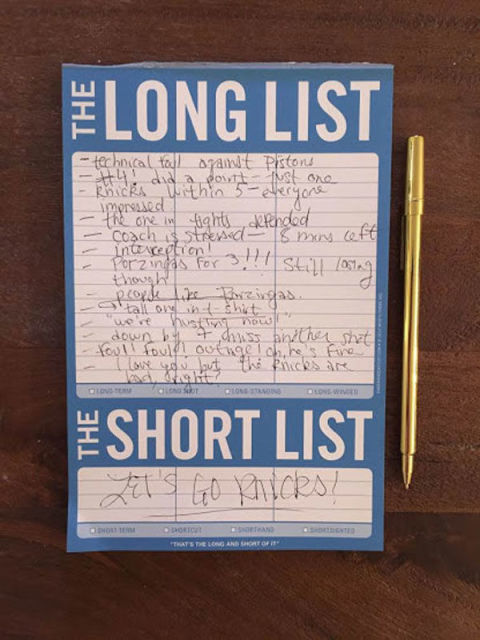 THE LONG LIST
- technical foul against Pistons
- #4! did a point - just one
- Knicks within 5 - everyone
impressed
- the one in tights defended
- Coach is stressed - 8 mins left
- Interception!
- Porzingas for 3!!! Still losing
though
- people like Porzingas.
tall one in t-shirt
- "we're hustling now!"
- down by 7 & miss another shot
- Foul! Foul! outrage! oh, he's fine
- I love you but the Knicks are
bad, right?
LONG-TERM LONG SHOT LONG-STANDING LONG-WINDED
THE SHORT LIST
LET'S GO KNICKS!
SHORT-TERM SHORTCUT SHORTHAND SHORTSIGHTED
"THAT'S THE LONG AND SHORT OF IT"